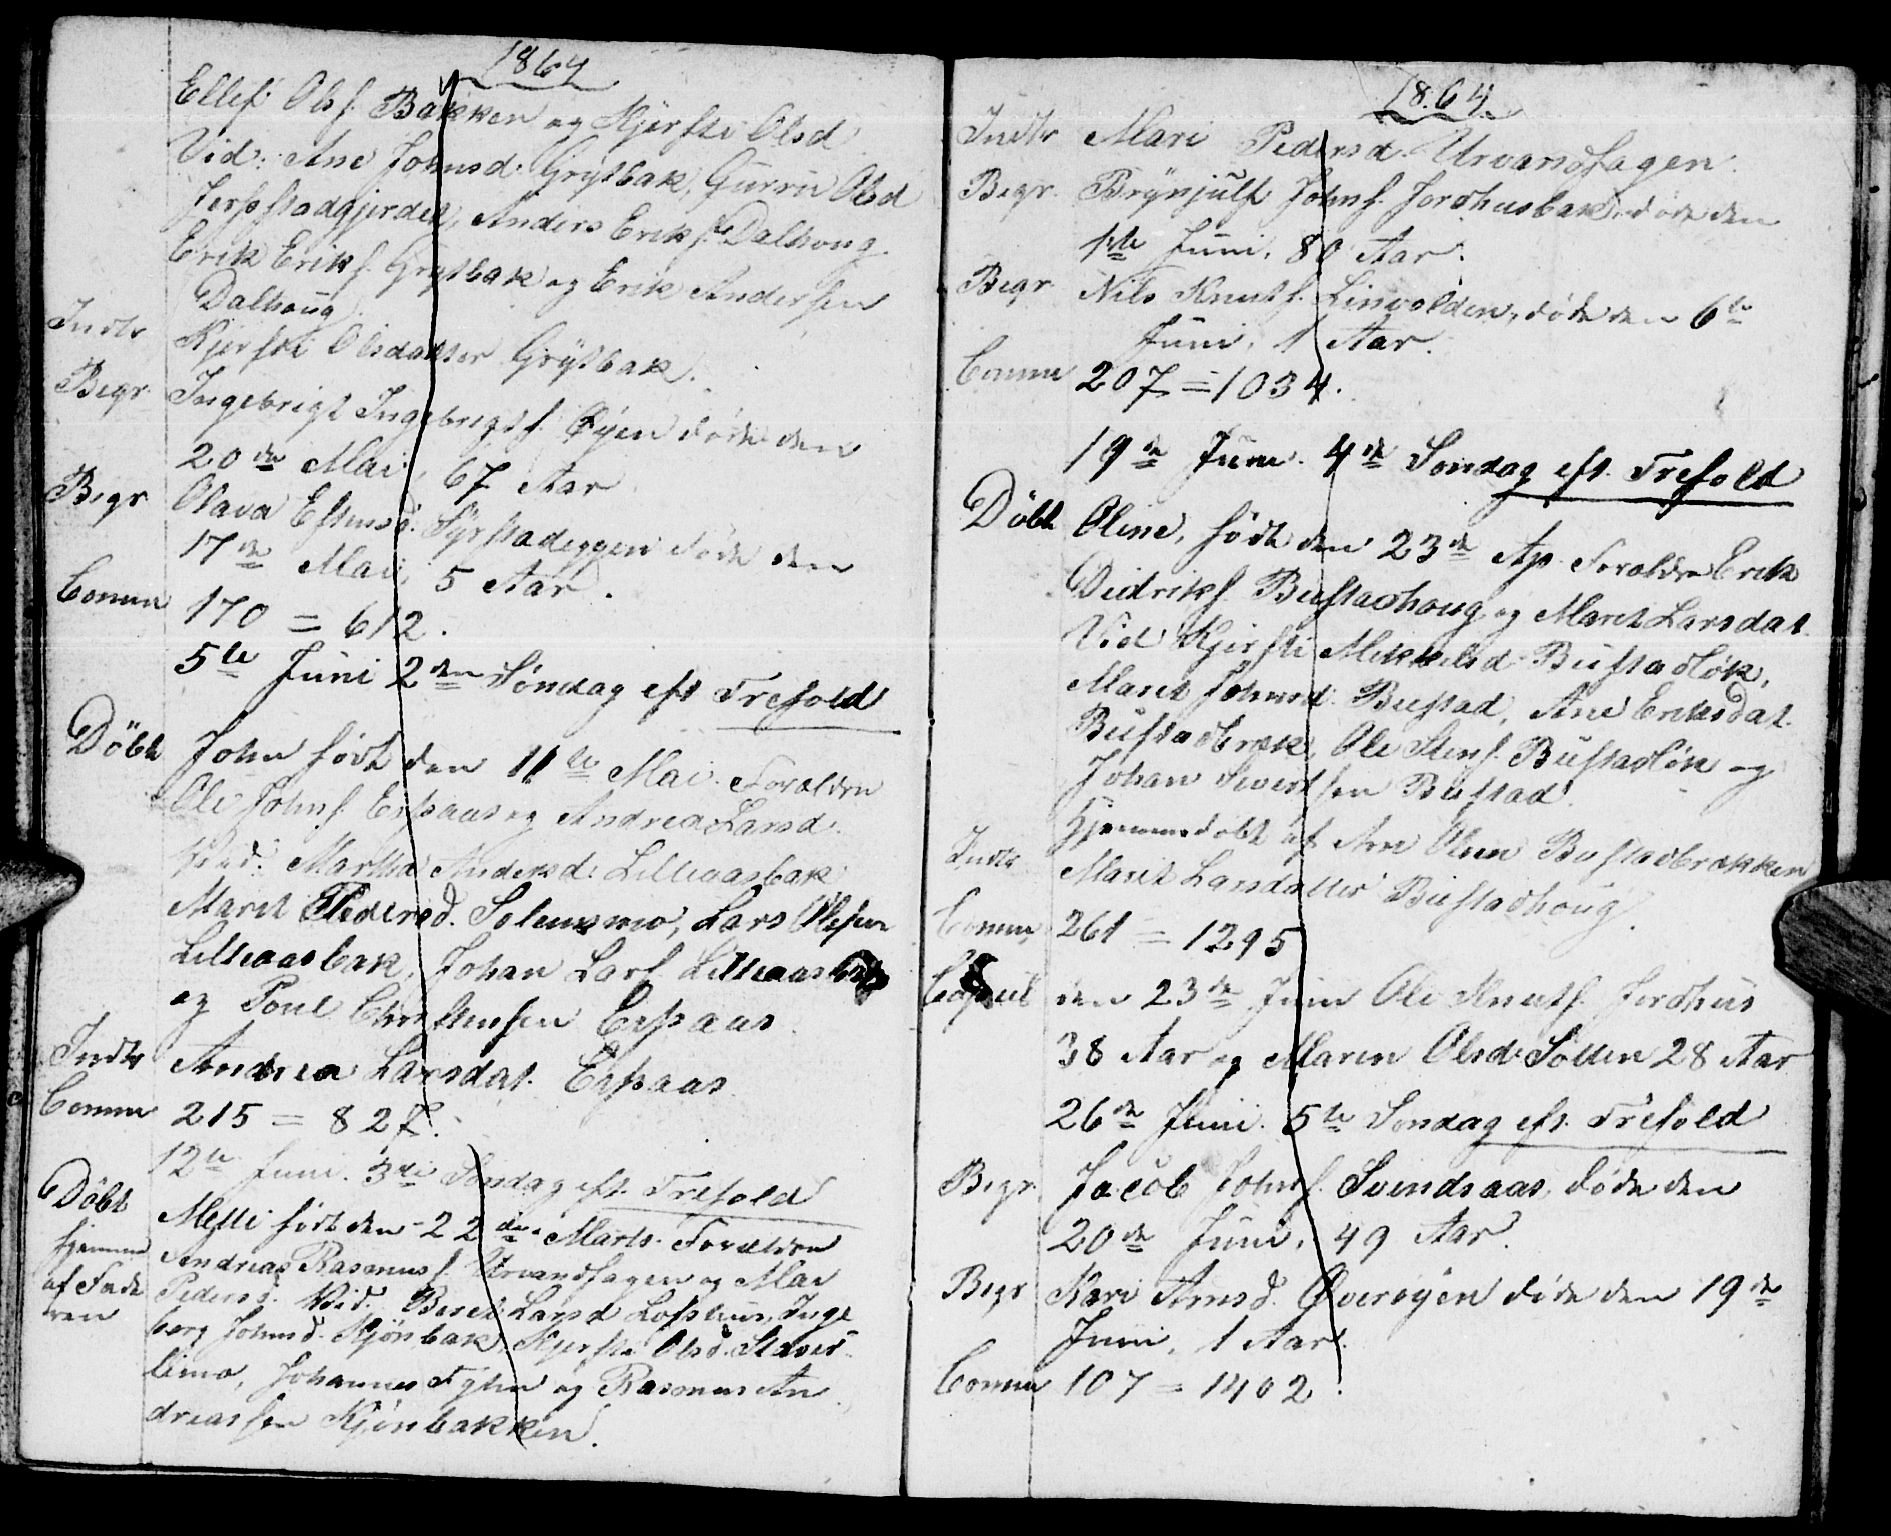 1864
Ellef Olsf. Bakken og Kjersti Olsd
Vid: Ane Johnsd. Grytbak, Gurru Olsd
Jerpstadgjerdet, Anders Erikf. Dalhoug
Erik Erikf. Grytbak og Erik Andersen
Dalhoug
Indtr Kjersti Olsdatter Grytbak.
Begr Ingebrigt Ingebrigtsf. Øyen døde den
20de Mai, 67 Aar
Begr Olava Estensd. Syrstadeggen døde den
17de Mai, 5 Aar.
Comm 170 = 612.
5te Juni 2den Søndag eft Trefold
Döbt John født den 11te Mai. Forældre
Ole Johnsf. Erpaas og Andrea Larsd.
Vid: Martha Andersd. Lilleaasbak
Marit Pedersd. Solemsmo, Lars Olsen
Lilleaasbak, Johan Larsf. Lilleaasbak
og Poul Christensen Erpaas
Indtr Andrea Larsdat. Erpaas
Comm 215 = 827.
12te Juni. 3die Søndag eft. Trefold
Döbt Metti født den 22de Marts. Forældre
hjemme Andreas Rasmusf. Urvandhagen og Mari
af Fade Pedersd. Vid. Berit Larsd Tofsteen, Inge
ren borg Johnsd. Kjönbak, Kjersti Olsd.
limo, Johannes og Rasmus An
dreassen Kjönbakken.
1864
Indtr Mari Pedersd. Urvandhagen.
Begr. Brynjulf Johnsf. Jordhusbak, døde den
1ste Juni, 80 Aar.
Begr Nils Knutsf. Linvolden, døde den 6te
Juni, 1 Aar.
Comm 207 = 1034.
19de Juni. 4de Søndag eft. Trefold
Döbt Oline, født den 23de Ap. Forældre Erik
Didriksf. Bustadhoug og Marit Larsdat.
Vid Kjersti Mikkelsd. Bustadløk,
Marit Johnsd. Bustad, Ane Eriksdat.
Bustadbræk, Ole Stensf. Bustadløk og
Johan Sivertsen Bustad.
Hjemmedöbt af Ane Olsen Bustadbrækken
Indtr Marit Larsdatter Bustadhoug.
Comm 261 = 1295
Copul den 23de Juni Ole Knutsf. Jordhus
38 Aar og Maren Olsd. Solem 28 Aar
26de Juni. 5te Søndag eft. Trefold
Begr. Jacob Johnsf. Svindsaas, døde den
20de Juni, 49 Aar.
Begr Kari Arnsd. Øverøyen døde den 19de
Juni, 1 Aar.
Comm 107 = 1402.